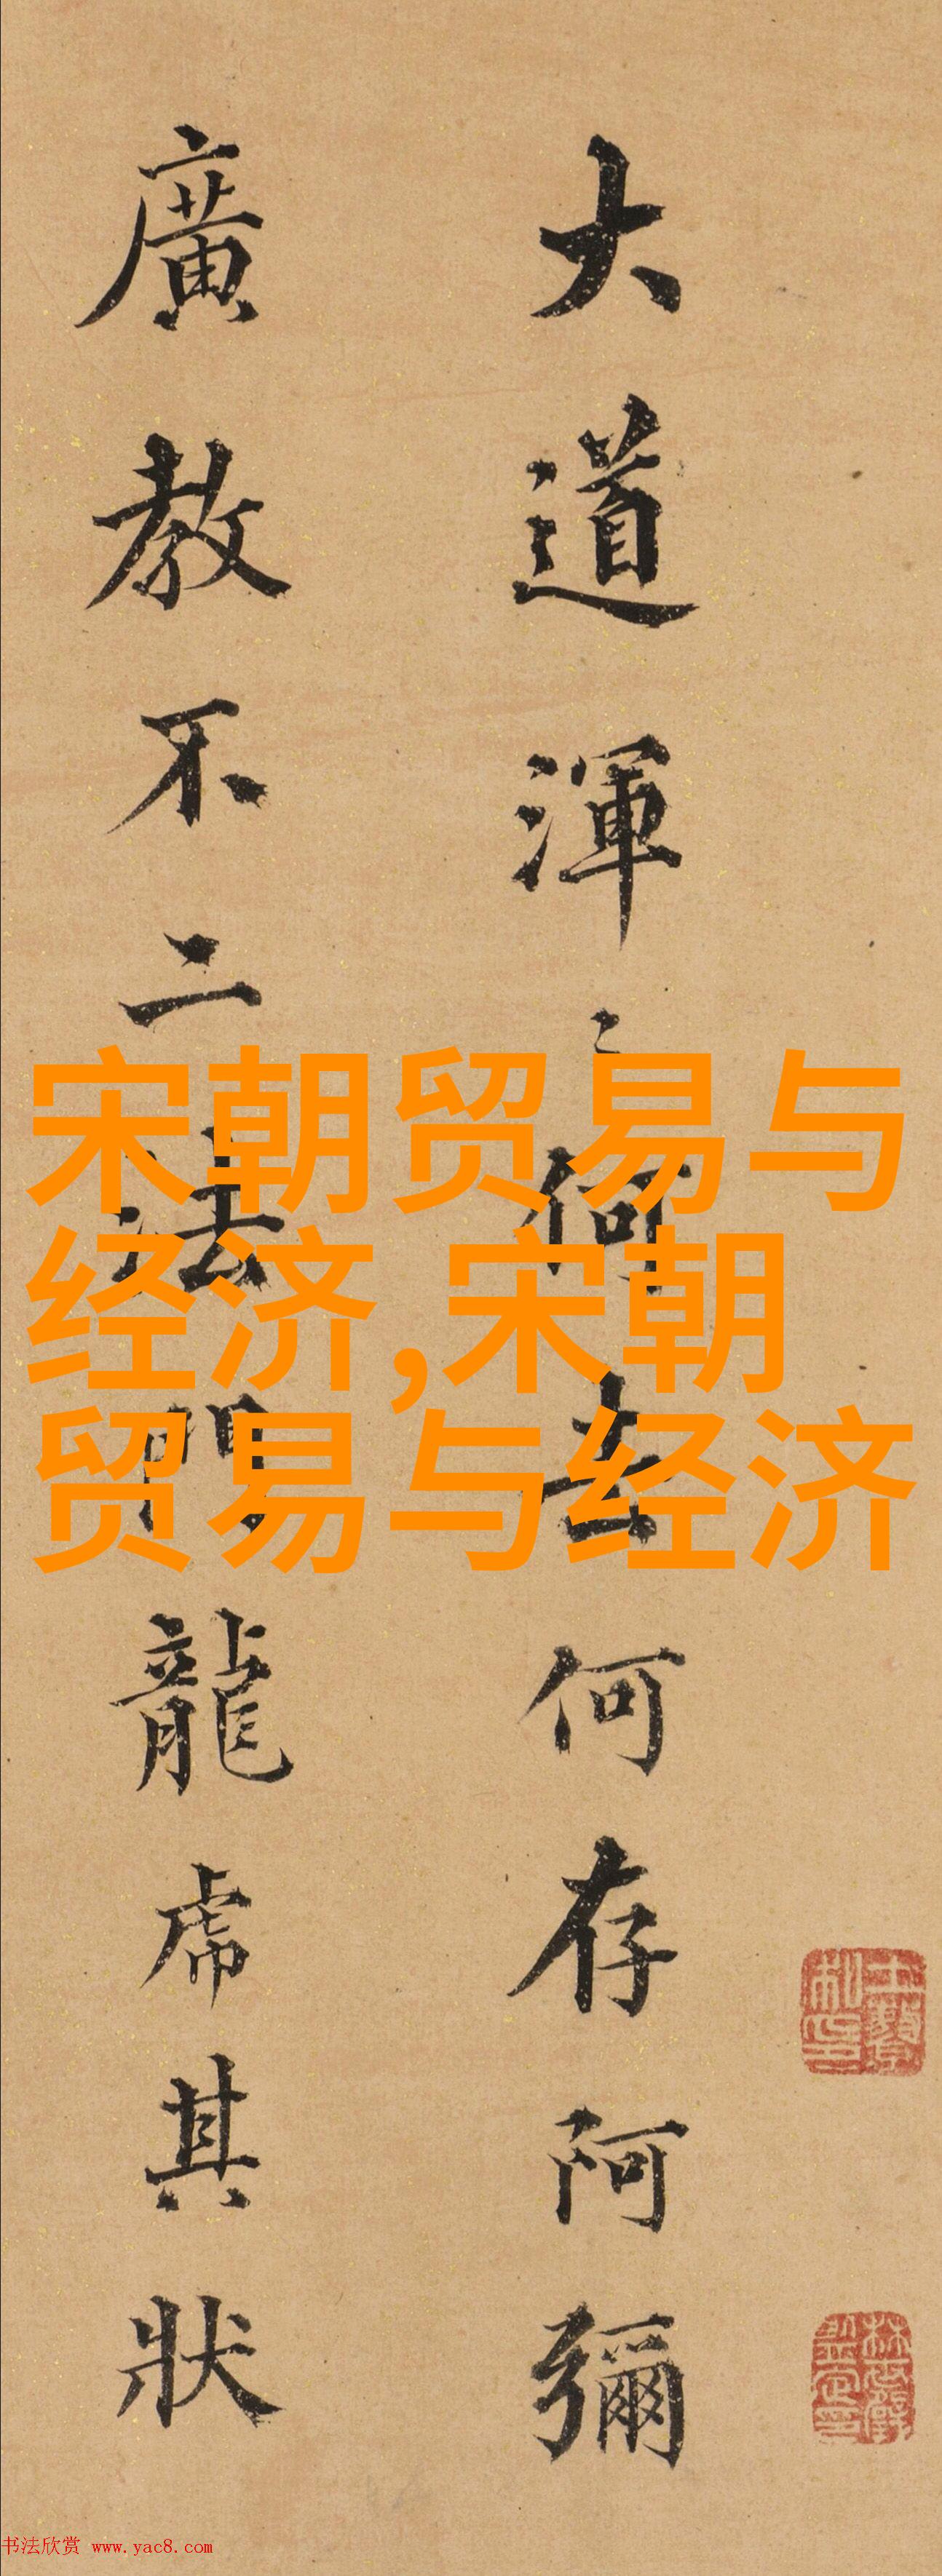 大道渾〻何去何存阿彌
廣教不二法門龍虎其狀
宋朝贸易与
经济,宋朝
贸易与经济
书法欣赏 www.yac8.com